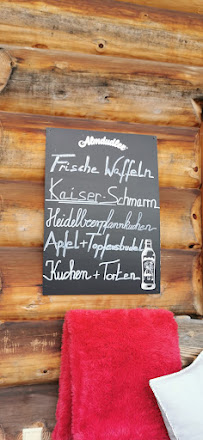 Almdudler
Frische Waffeln
Kaiser-Schmarrn
Heidelbeerpfannkuchen
Apfel+Topfenstrudel
Kuchen + Torten